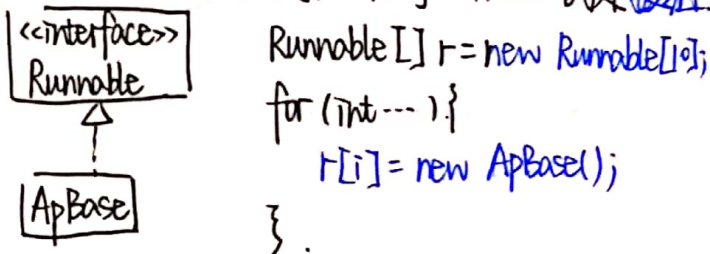 <<interface>>
Runnable
ApBase
Runnable [] r = new Runnable[10];
for (int ... ) {
r[i] = new ApBase();
}